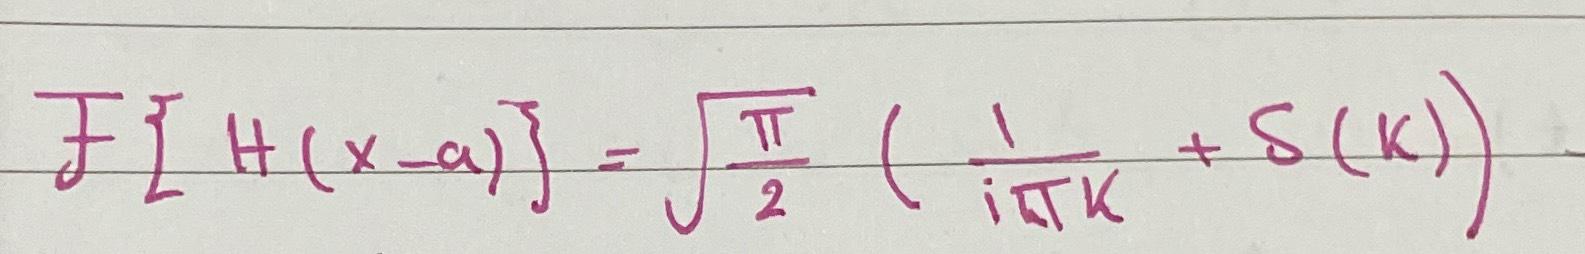 F{ H(x-a)} = √(π/2) ( 1/(iπK) + δ(K) )